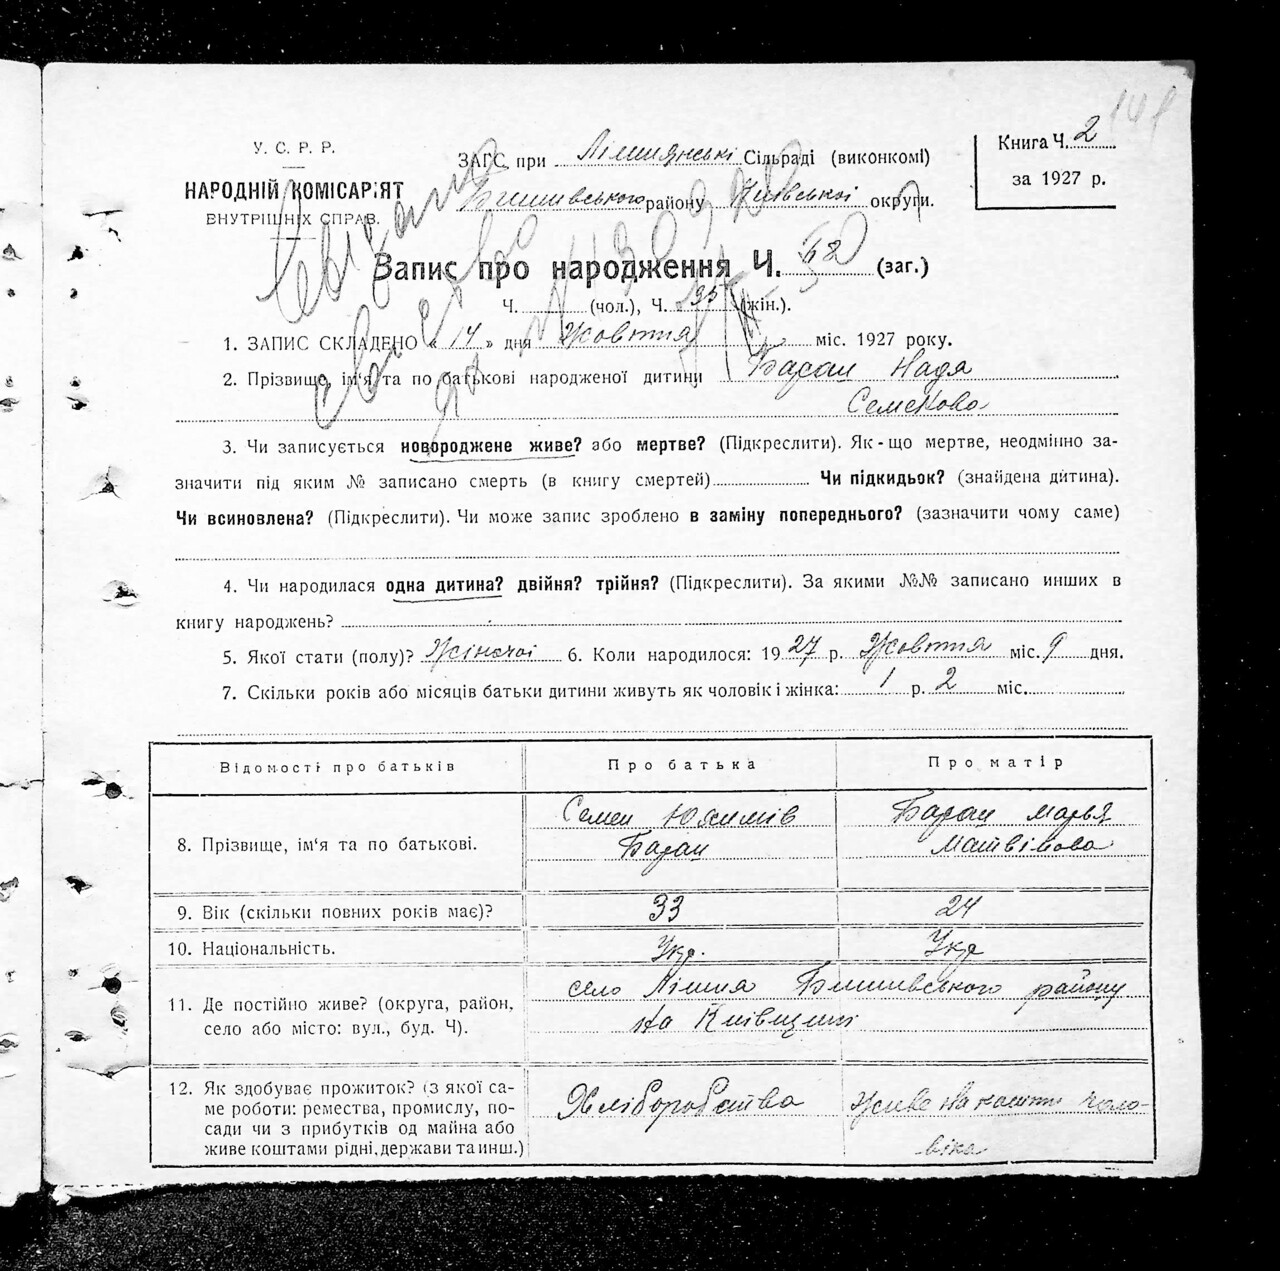 У. С. Р. Р.
НАРОДНІЙ КОМІСАРІЯТ
ВНУТРІШНІХ СПРАВ.
ЗАГС при Лішнянські Сільраді (виконкомі)
Бишівського району Київської округи.
Книга Ч. 2
за 1927 р.
Запис про народження Ч. 68 (заг.)
Ч. (чол.), Ч. 35 (жін.).
1. ЗАПИС СКЛАДЕНО « 14 » дня Жовтня міс. 1927 року.
2. Прізвище, ім'я та по батькові народженої дитини Баран Надя
Семенова
3. Чи записується новороджене живе? або мертве? (Підкреслити). Як-що мертве, неодмінно за-
значити під яким № записано смерть (в книгу смертей) Чи підкидьок? (знайдена дитина).
Чи всиновлена? (Підкреслити). Чи може запис зроблено в заміну попереднього? (зазначити чому саме)
4. Чи народилася одна дитина? двійня? трійня? (Підкреслити). За якими №№ записано инших в
книгу народжень?
5. Якої стати (полу)? Жіночої 6. Коли народилося: 1927 р. Жовтня міс. 9 дня.
7. Скільки років або місяців батьки дитини живуть як чоловік і жінка: 1 р. 2 міс.
Відомості про батьків Про батька Про матір
8. Прізвище, ім'я та по батькові. Семен Юхимів Баран Марья
Баран Матвіївова
9. Вік (скільки повних років має)? 33 24
10. Національність. Укр. Укр
11. Де постійно живе? (округа, район, село Лішня Бишивського району
село або місто: вул., буд. Ч). на Київщині
12. Як здобуває прожиток? (з якої са- Хліборобства Живе на кошти чоло-
ме роботи: ремества, промислу, по- віка
сади чи з прибутків од майна або
живе коштами рідні, держави та инш.)